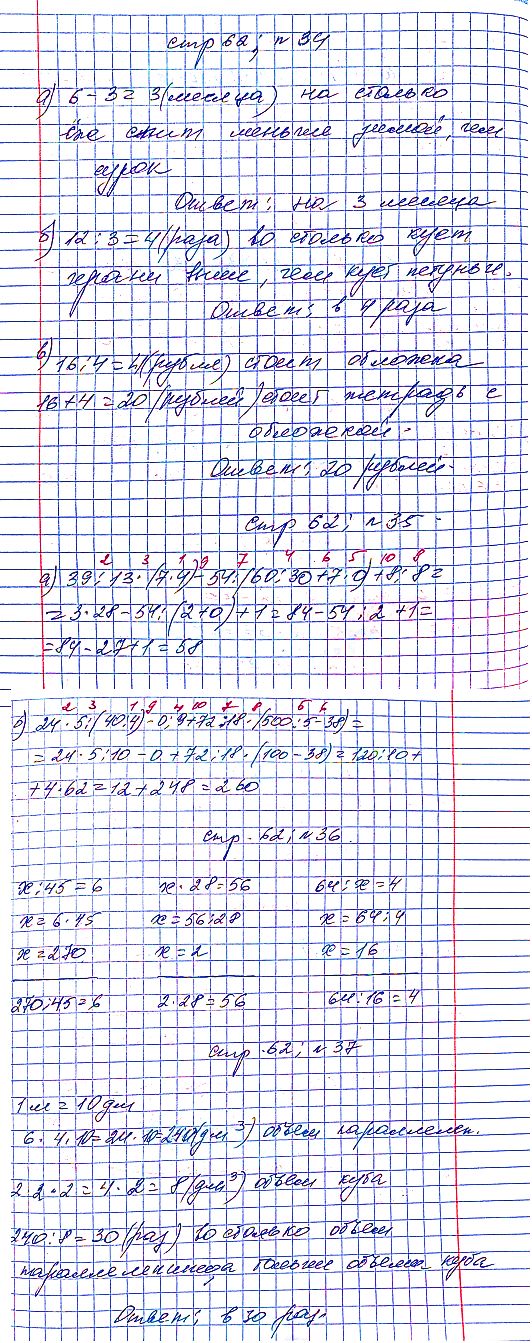 стр 62; n 34
а) 6 - 3 = 3 (месяца) на столько
ёж спит меньше зимой, чем
сурок
Ответ: на 3 месяца
б) 12 : 3 = 4 (раза) во столько куст
герани выше, чем куст петуньи.
Ответ: в 4 раза
в) 16 : 4 = 4 (рубля) стоит обложка
16 + 4 = 20 (рублей) стоит тетрадь с
обложкой.
Ответ: 20 рублей.
стр 62; n 35
2 3 1 9 7 4 6 5 10 8
а) 39 : 13 · (7 · 4) - 54 : (60 : 30 + 7 · 0) + 8 : 8 =
= 3 · 28 - 54 : (2 + 0) + 1 = 84 - 54 : 2 + 1 =
= 84 - 27 + 1 = 58
2 3 1 9 4 10 7 8 5 6
б) 24 · 5 : (40 : 4) - 0 : 9 + 72 : 18 · (500 : 5 - 38) =
= 24 · 5 : 10 - 0 + 72 : 18 · (100 - 38) = 120 : 10 +
+ 4 · 62 = 12 + 248 = 260
стр. 62; n 36
x : 45 = 6 x · 28 = 56 64 : x = 4
x = 6 · 45 x = 56 : 28 x = 64 : 4
x = 270 x = 2 x = 16
270 : 45 = 6 2 · 28 = 56 64 : 16 = 4
стр. 62; n 37
1 м = 10 дм
6 · 4 · 10 = 24 · 10 = 240 (дм³) объем параллелеп.
2 · 2 · 2 = 4 · 2 = 8 (дм³) объем куба
240 : 8 = 30 (раз) во столько объем
параллелепипеда больше объема куба
Ответ: в 30 раз.